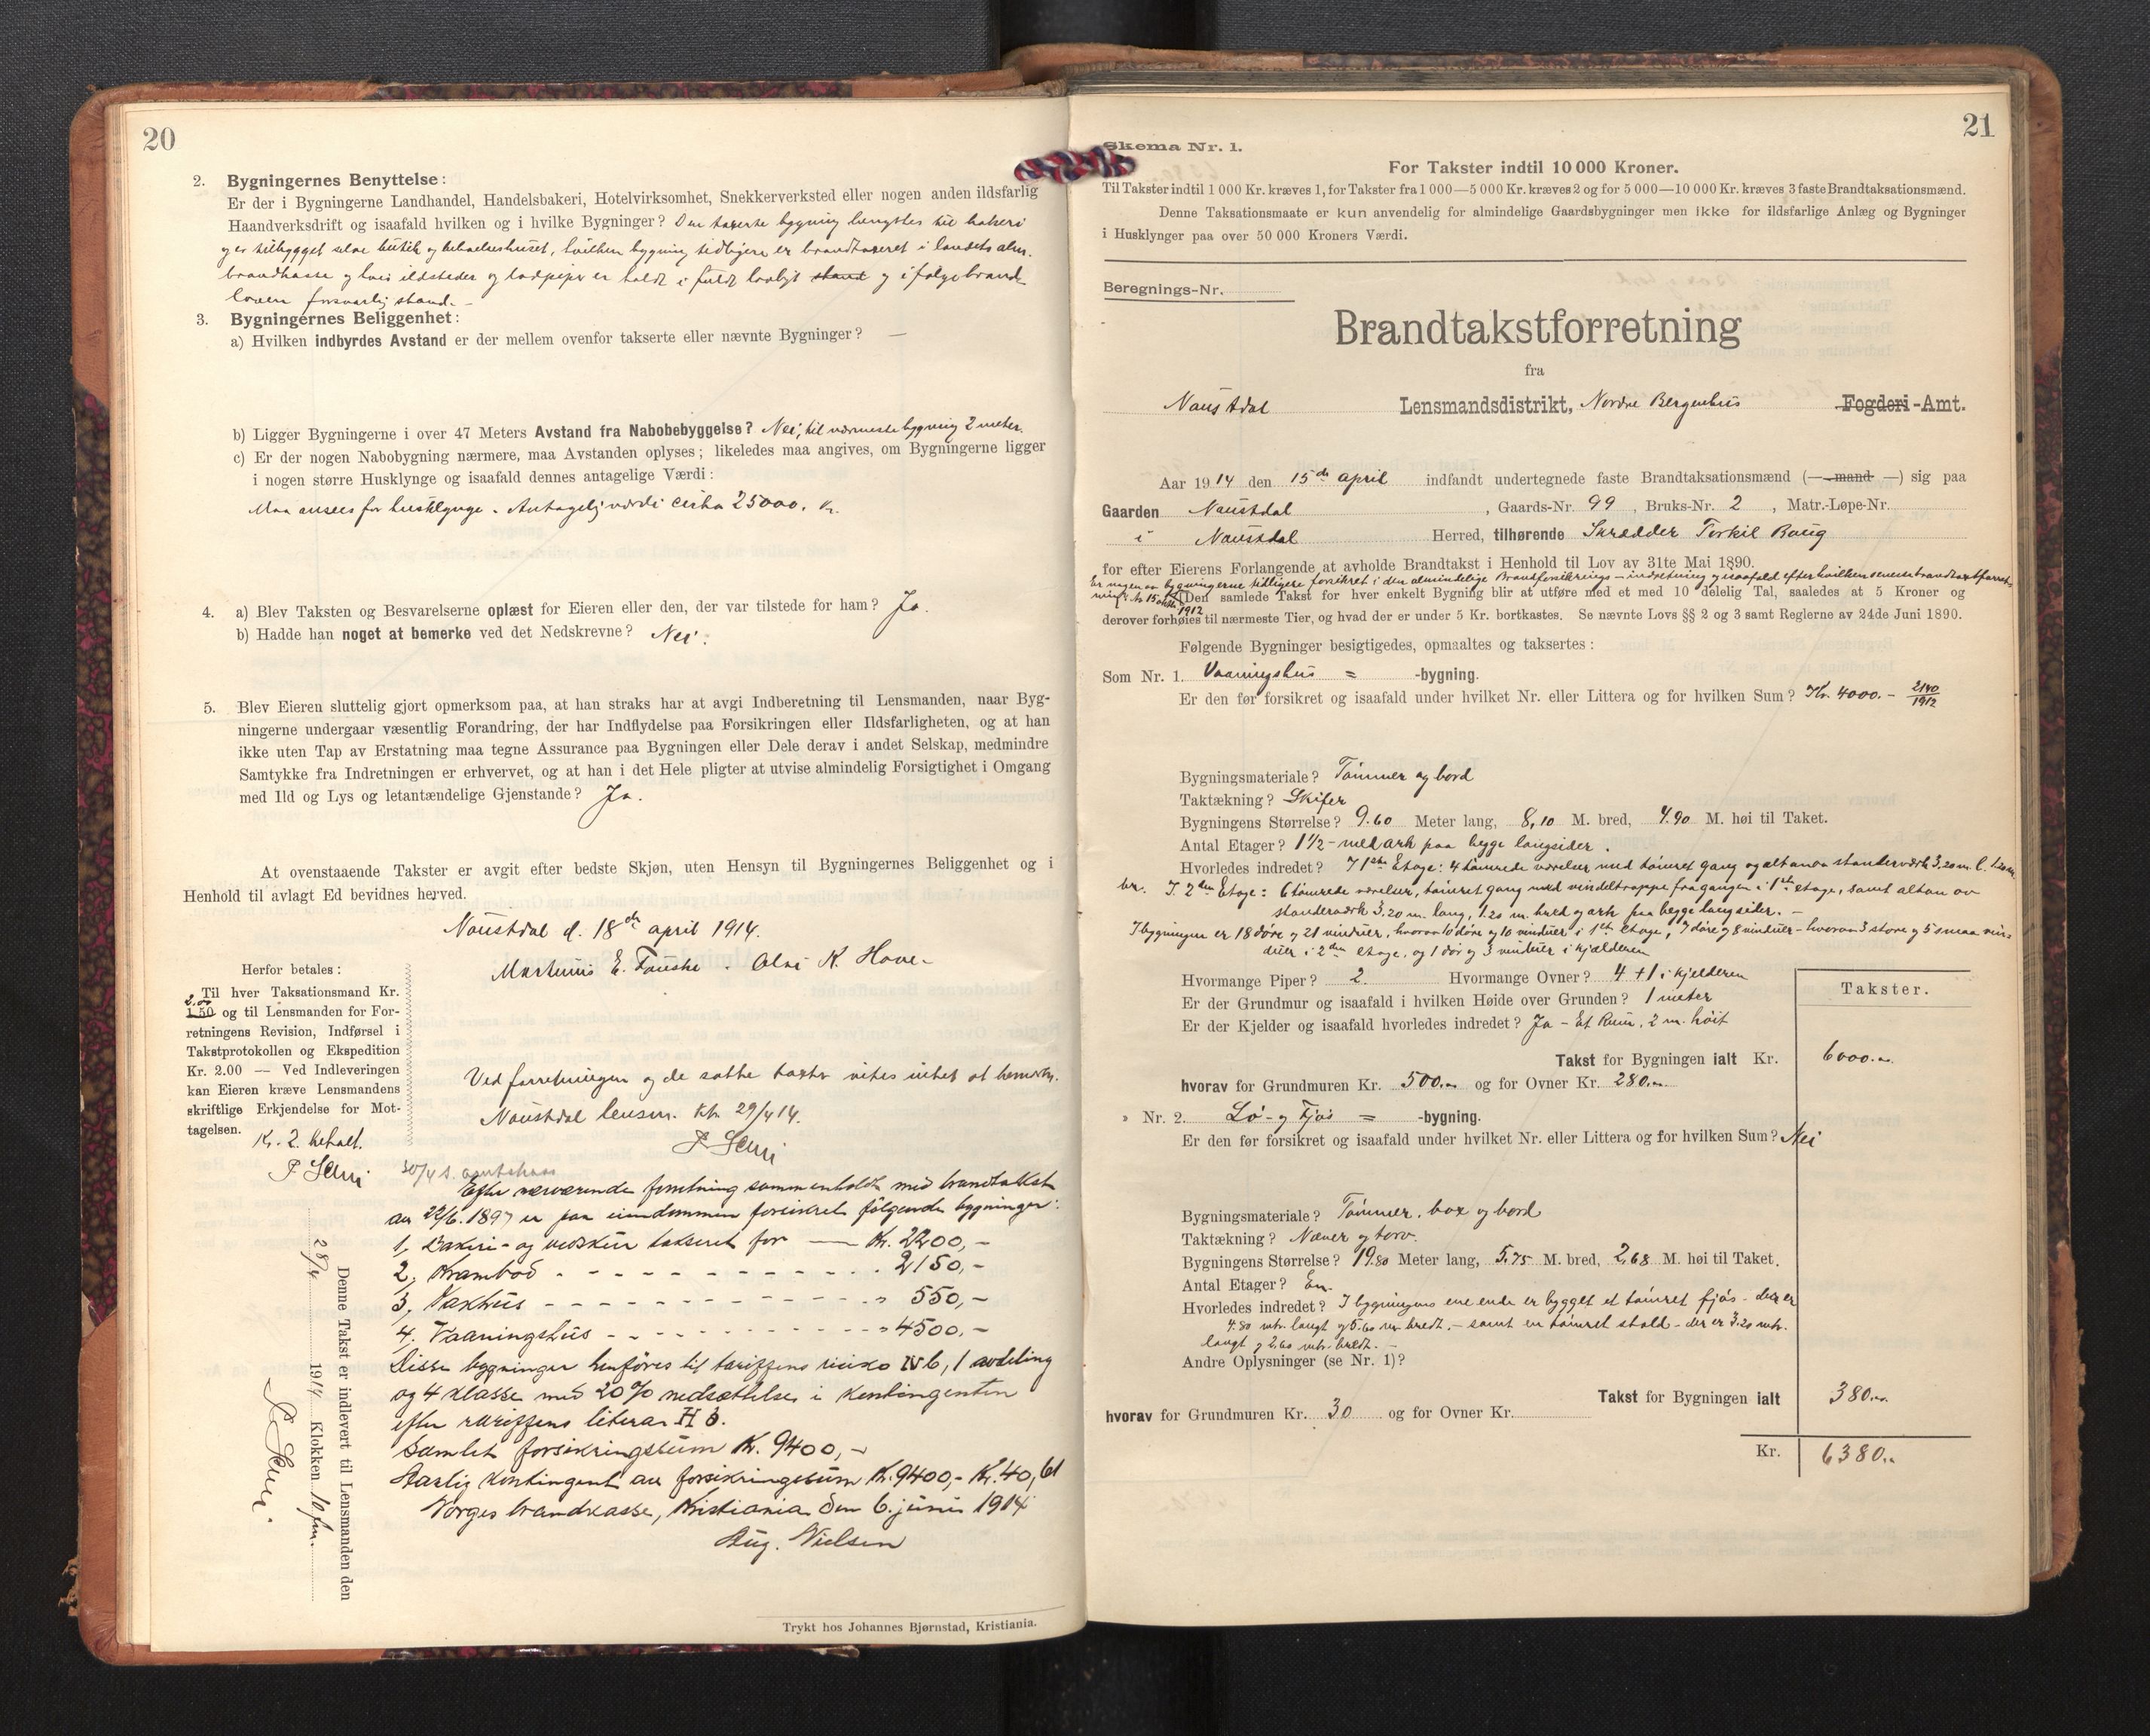 20
2. Bygningernes Benyttelse:
Er der i Bygningerne Landhandel, Handelsbakeri, Hotelvirksomhet, Snekkerverksted eller nogen anden ildsfarlig
Haandverksdrift og isaafald hvilken og i hvilke Bygninger? Den taxerte bygning benyttes til bakeri
og er tilbygget selve butik og beboelseshuset, hvilken bygning tidligere er brandtaxeret i landets alm.
brandkasse og hvis ildsteder og er holdt i fuldt lovligt stand og ifølge brand-
loven forsvarlig stand. -
3. Bygningernes Beliggenhet:
a) Hvilken indbyrdes Avstand er der mellem ovenfor takserte eller nævnte Bygninger? —
b) Ligger Bygningerne i over 47 Meters Avstand fra Nabobebyggelse? Nei, til nærmeste bygning 2 meter.
c) Er der nogen Nabobygning nærmere, maa Avstanden oplyses; likeledes maa angives, om Bygningerne ligger
i nogen større Husklynge og isaafald dennes antagelige Værdi:
Maa ansees for husklynge. Antagelig værdi cirka 25000. Kr.
4. a) Blev Taksten og Besvarelserne oplæst for Eieren eller den, der var tilstede for ham? Ja.
b) Hadde han noget at bemerke ved det Nedskrevne? Nei.
5. Blev Eieren sluttelig gjort opmerksom paa, at han straks har at avgi Indberetning til Lensmanden, naar Byg-
ningerne undergaar væsentlig Forandring, der har Indflydelse paa Forsikringen eller Ildsfarligheten, og at han
ikke uten Tap av Erstatning maa tegne Assurance paa Bygningen eller Dele derav i andet Selskap, medmindre
Samtykke fra Indretningen er erhvervet, og at han i det Hele pligter at utvise almindelig Forsigtighet i Omgang
med Ild og Lys og letantændelige Gjenstande? Ja.
At ovenstaaende Takster er avgit efter bedste Skjøn, uten Hensyn til Bygningernes Beliggenhet og i
Henhold til avlagt Ed bevidnes herved.
Naustdal d. 18de april 1914.
Martinus E. Fauske. K. Hove.
Herfor betales:
Til hver Taksationsmand Kr.
2.00
1.50 og til Lensmanden for For-
retningens Revision, Indførsel i
Takstprotokollen og Ekspedition
Kr. 2.00 — Ved Indleveringen
kan Eieren kræve Lensmandens
skriftlige Erkjendelse for Mot-
tagelsen.
Kr. 2. betalt.
Ved forretningen og de satte taxter vites intet at bemerke.
Naustdal lensm. kt. 29/4 14.
30/4 s. amtskass
Efter nærværende forretning sammenholdt med brandtakst
av 22/6.1897 er paa eiendommen forsikret følgende bygninger:
1, Bakeri- og vedskur takseret for — Kr. 2200,-
2, Krambod - - - - 2150,-
3, Vaxhus - - - - " 550,-
4. Vaaningshus - - - - " 4500.-
Disse bygninger henføres til tariffens risiko IV b, 1 avdeling
og 4 klasse med 20% nedsættelse i kontingenten
efter tariffens litera H b.
Samlet forsikringssum Kr. 9400,-
Aarlig kontingent av forsikringssum Kr. 9400,- Kr. 40,61
Norges brandkasse, Kristiania den 6. juni 1914
Aug. Nielsen
Denne Takst er indlevert til Lensmanden den
28/4 1914 Klokken 10 fm.
Trykt hos Johannes Bjørnstad, Kristiania.
21
Skema Nr. 1.
For Takster indtil 10 000 Kroner.
Til Takster indtil 1 000 Kr. kræves 1, for Takster fra 1 000—5 000 Kr. kræves 2 og for 5 000—10 000 Kr. kræves 3 faste Brandtaksationsmænd.
Denne Taksationsmaate er kun anvendelig for almindelige Gaardsbygninger men ikke for ildsfarlige Anlæg og Bygninger
i Husklynger paa over 50 000 Kroners Værdi.
Beregnings-Nr.
Brandtakstforretning
fra
Naustdal Lensmandsdistrikt, Nordre Bergenhus Fogderi-Amt.
Aar 1914 den 15de april indfandt undertegnede faste Brandtaksationsmænd (— mand —) sig paa
Gaarden Naustdal, Gaards-Nr. 99, Bruks-Nr. 2, Matr.-Løpe-Nr.
i Naustdal Herred, tilhørende Skrædder Torkil Boug
for efter Eierens Forlangende at avholde Brandtakst i Henhold til Lov av 31te Mai 1890.
Er nogen av bygningerne tidligere forsikret i den almindelige Brandforsikrings-indretning og isaafald efter hvilken seneste brandtaxtforret-
ning? Av 15 1912 Den samlede Takst for hver enkelt Bygning blir at utføre med et med 10 delelig Tal, saaledes at 5 Kroner og
derover forhøies til nærmeste Tier, og hvad der er under 5 Kr. bortkastes. Se nævnte Lovs §§ 2 og 3 samt Reglerne av 24de Juni 1890.
Følgende Bygninger besigtigedes, opmaaltes og taksertes:
Som Nr. 1. Vaaningshus = -bygning.
Er den før forsikret og isaafald under hvilket Nr. eller Littera og for hvilken Sum? Kr. 4000.- 2140/1912
Bygningsmateriale? Tømmer og bord
Taktækning? Skifer
Bygningens Størrelse? 9.60 Meter lang, 8,10 M. bred, 4.90 M. høi til Taket.
Antal Etager? 1½ - med ark paa begge langsider.
Hvorledes indredet? I 1ste Etage: 4 tømrede værelser med tømret gang og altan av standerværk 3,20 m. l. 1.20 m.
br. I 2den Etage: 6 tømrede værelser, tømret gang med vindeltrappe fra gangen i 1ste etage, samt altan av
standerværk 3.20 m. lang, 1.20 m. bred og ark paa begge langsider. -
I bygningen er 18 døre og 21 vinduer, hvorav 10 døre og 10 vinduer i 1ste etage, 7 døre og 8 vinduer - hvorav 3 store og 5 smaa vin-
duer i 2den etage, og 1 dør og 3 vinduer i kjælderen
Hvormange Piper? 2. Hvormange Ovner? 4 + 1 i kjelderen
Er der Grundmur og isaafald i hvilken Høide over Grunden? 1 meter
Er der Kjelder og isaafald hvorledes indredet? Ja - Et Rum, 2 m. høit
Takster.
Takst for Bygningen ialt Kr. 6000.
hvorav for Grundmuren Kr. 500. og for Ovner Kr. 280.
» Nr. 2. Lø- og Fjøs = -bygning.
Er den før forsikret og isaafald under hvilket Nr. eller Littera og for hvilken Sum? Nei
Bygningsmateriale? Tømmer, og bord
Taktækning? Næver og torv.
Bygningens Størrelse? 19.80 Meter lang, 5.75 M. bred, 2,68 M. høi til Taket.
Antal Etager? En.
Hvorledes indredet? I bygningens ene ende er bygget et tømret fjøs - der er
4.80 mtr. langt og 5.60 mtr. bredt. - samt en tømret stald - der er 3.20 mtr.
langt og 2.60 mtr. bredt. -
Andre Oplysninger (se Nr. 1)?
Takst for Bygningen ialt 380.
hvorav for Grundmuren Kr. 30 og for Ovner Kr.
Kr. 6380.